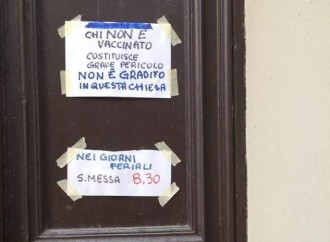 CHI NON E
VACCINATO
COSTITUISCE
GRAVE PERICOLO
NON È GRADITO
IN QUESTA CHIESA
NEI GIORNI
FERIALI
S. MESSA 8,30